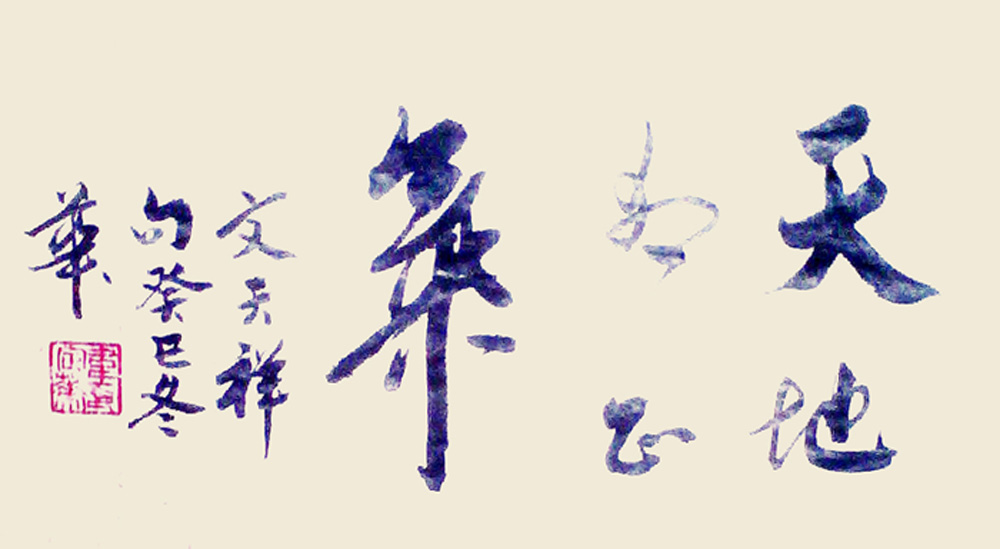 天地
有正
氣
文天祥
句癸巳冬
華